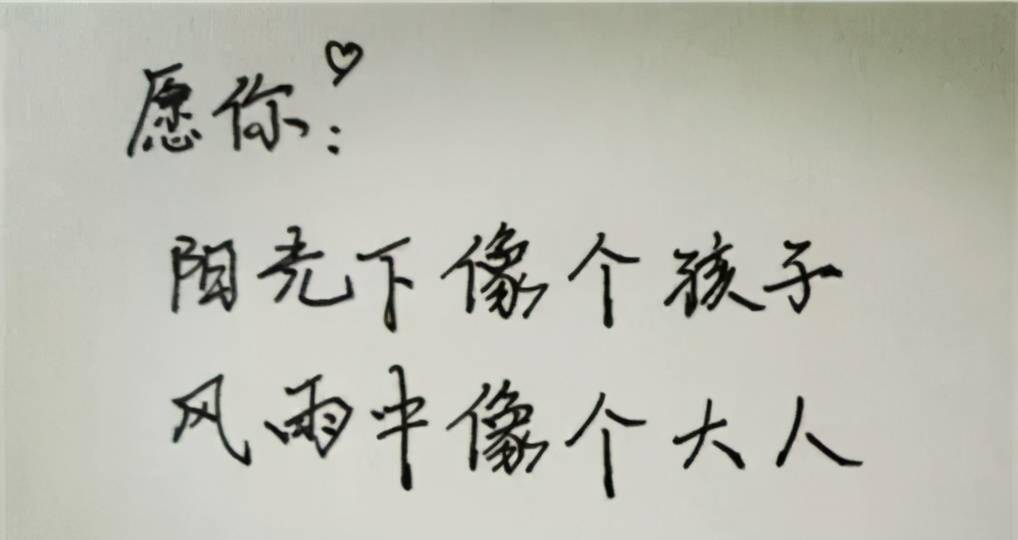 愿你:
阳光下像个孩子
风雨中像个大人